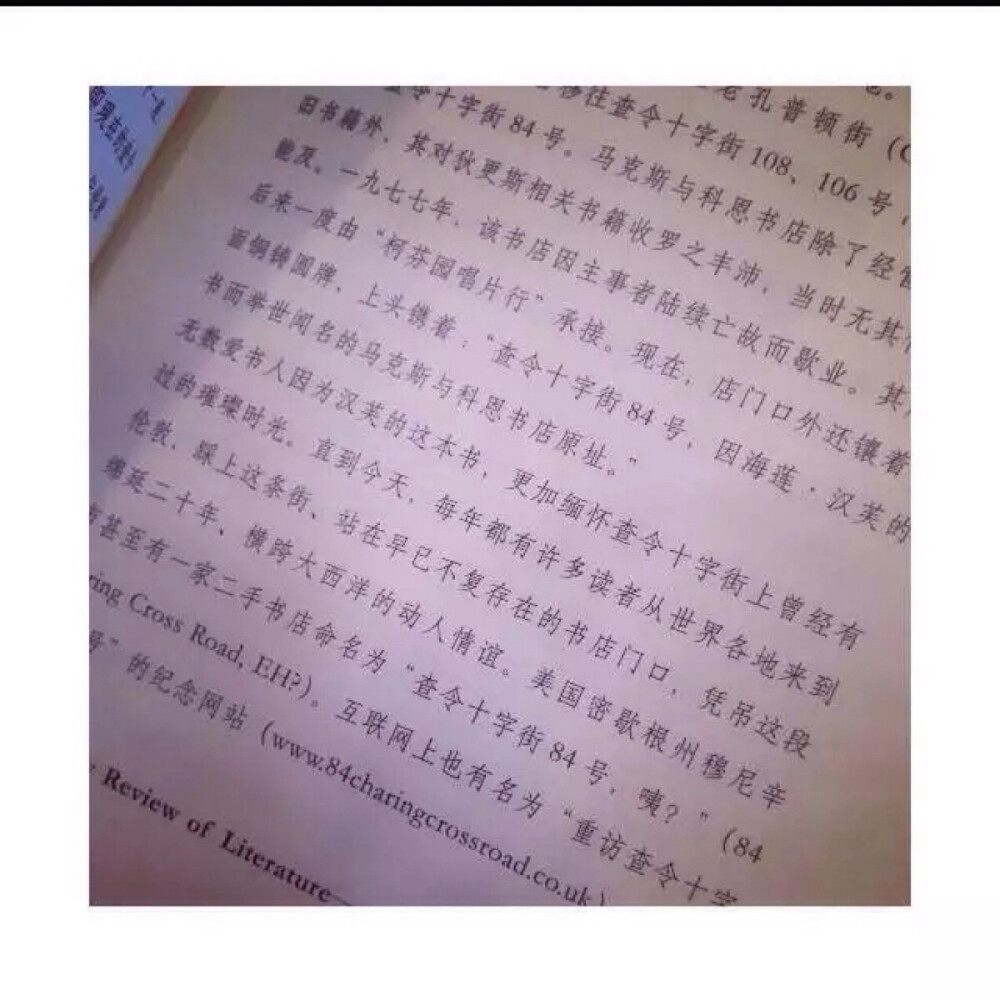 老孔普顿街（C
移往查令十字街 108、106 号，
令十字街 84 号。马克斯与科恩书店除了经营
旧书籍外，其对狄更斯相关书籍收罗之丰沛，当时无其
能及。一九七七年，该书店因主事者陆续亡故而歇业。其
后来一度由“柯芬园唱片行”承接。现在，店门口外还镶着
面铜铸圆牌，上头镌着：“查令十字街 84 号，因海莲·汉芙的
书而举世闻名的马克斯与科恩书店原址。”
无数爱书人因为汉芙的这本书，更加缅怀查令十字街上曾经有
过的璀璨时光。直到今天，每年都有许多读者从世界各地来到
伦敦，踩上这条街、站在早已不复存在的书店门口，凭吊这段
绵延二十年、横跨大西洋的动人情谊。美国密歇根州穆尼辛
甚至有一家二手书店命名为“查令十字街 84 号，咦？”（84
ring Cross Road, EH?）。互联网上也有名为“重访查令十字
号”的纪念网站（www.84charingcrossroad.co.uk）
Review of Literature—